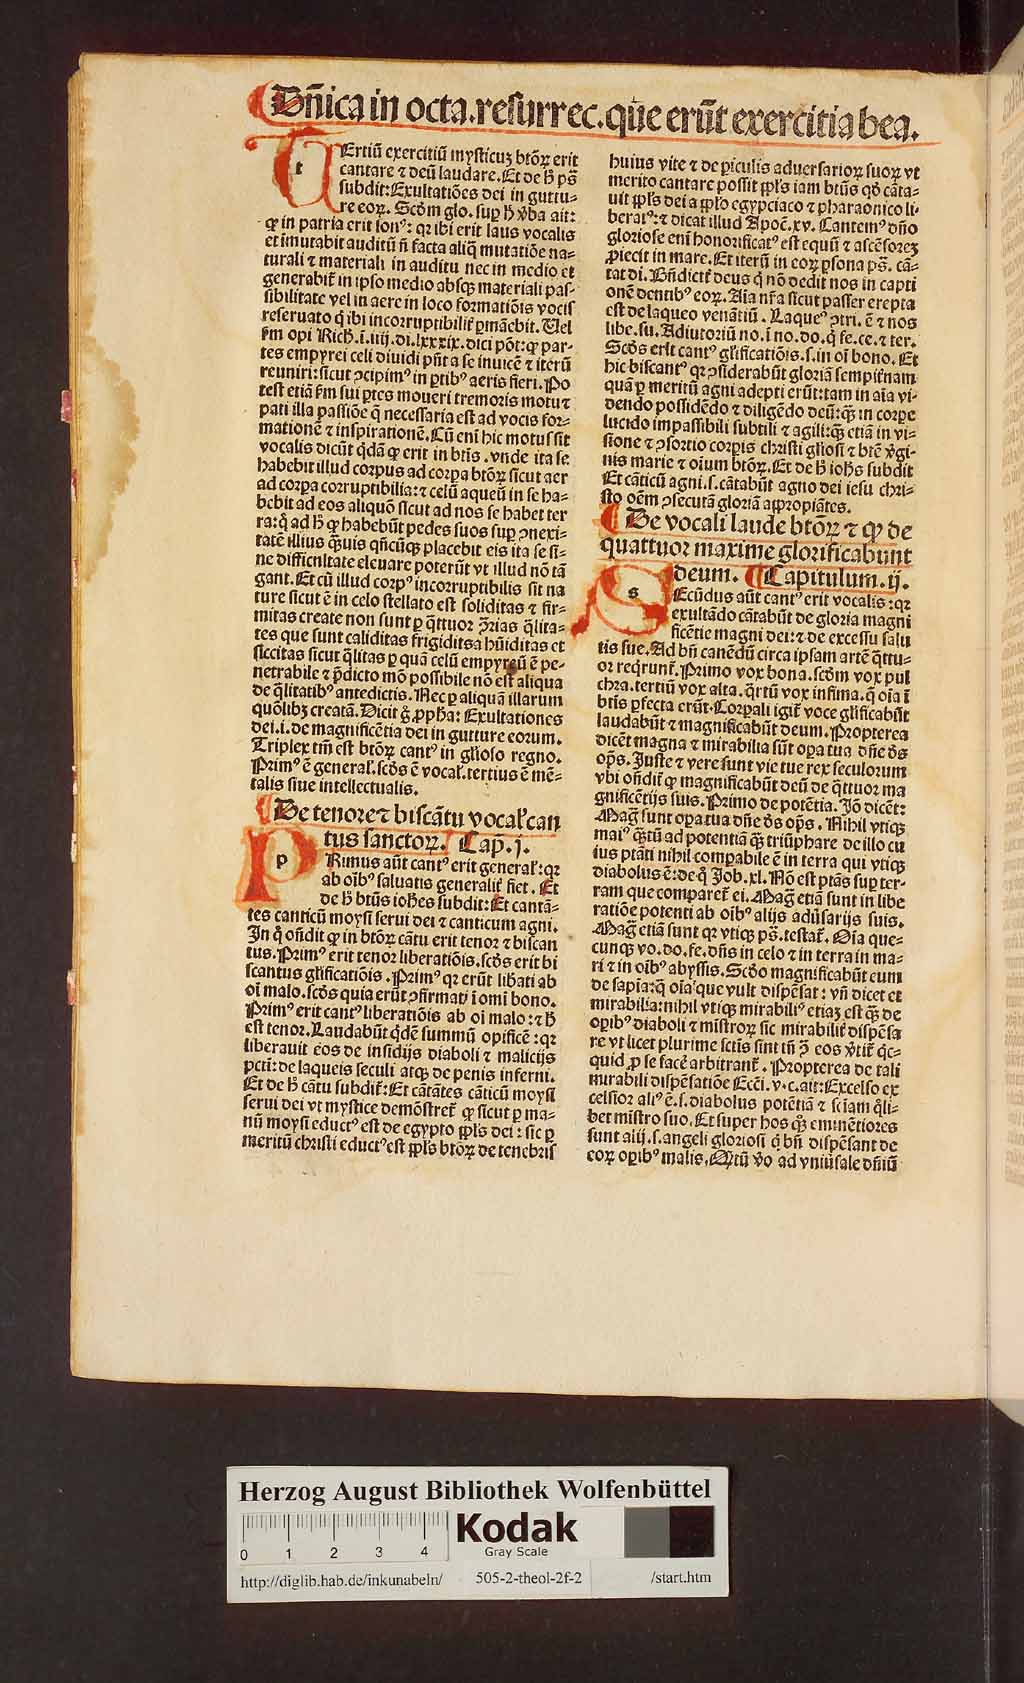 Dñica in octa.resurrec.que erũt exercitia bea.
TErtiũ exercitiũ mysticuʒ btõꝝ erit
cantare ⁊ deũ laudare. Et de h̃ pꝰ
subdit: Exultatiões dei in guttu-
re eoꝝ. Scd̃m glo. suꝑ h̃ v̾ba ait:
ꝙ in patria erit sonꝰ: qꝛ ibi erit laus vocalis
et imutabit auditũ ñ facta aliq̃ mutatiõe na-
turali ⁊ materiali in auditu nec in medio et
generabit̃ in ipso medio absqʒ materiali pas-
sibilitate vel in aere in loco formatiõis vocis
reseruato q̃ ibi incorruptibilit̃ ꝑmãebit. Uel
f̃m opi Rich̃. i. iiij. di. lxxxix. dici põt: ꝙ par-
tes empyrei celi diuidi pñt a se inuicẽ ⁊ iterũ
reuniri: sicut ꝯcipimꝰ in ꝑtibꝰ aeris fieri. Po
test etiã f̃m sui ꝑtes moueri tremoris motu ⁊
pati illa passiõe q̃ necessaria est ad vocis for-
mationẽ ⁊ inspirationẽ. Cũ eni hic motus sit
vocalis dicũt q̃dã ꝙ erit in btĩs. vnde ita se
habebit illud corpus ad corpa btõꝝ sicut aer
ad corpa corruptibilia: ⁊ celũ aqueũ in se ha-
bebit ad eos aliquõ sicut ad nos se habet ter
ra: q̃ ad h̃ ꝙ habebũt pedes suos suꝑ ꝯnexi-
tatẽ illius q̃uis qñcũqʒ placebit eis ita se si-
ne difficultate eleuare poterũt vt illud nõ tã
gant. Et cũ illud corpꝰ incorruptibilis sit na
ture sicut ẽ in celo stellato est soliditas ⁊ fir-
mitas create non sunt ꝑ q̃ttuor ꝯ̃rias q̃lita-
tes que sunt caliditas frigiditas hũiditas et
siccitas sicut q̃litas ꝑ quã celũ empyreũ ẽ pe-
netrabile ⁊ p̃dicto mõ possibile nõ est aliqua
de q̃litatibꝰ antedictis. Nec ꝑ aliquã illarum
quõlibʒ creatã. Dicit g̃ ꝓph̃a: Exultationes
dei. i. de magnificẽtia dei in gutture eorum.
Triplex tm̃ est btõꝝ cantꝰ in gl̃ioso regno.
Primꝰ ẽ general̃. scd̃s ẽ vocal̃. tertius ẽ mẽ-
talis siue intellectualis.
De tenore ⁊ biscãtu vocal̃ can
tus sanctoꝝ. Cap̃. j.
PRimus aũt cantꝰ erit general̃: qꝛ
ab oĩbꝰ saluatis generalit̃ fiet. Et
de h̃ btũs ioh̃es subdit: Et cantã-
tes canticũ moysi serui dei ⁊ canticum agni.
In q̃ oñdit ꝙ in btõꝝ cãtu erit tenor ⁊ biscan
tus. Primꝰ erit tenor liberatiõis. scd̃s erit bi
scantus gl̃ificatiõis. Primꝰ qꝛ erũt lib̃ati ab
oĩ malo. scd̃s quia erũt ꝯfirmati ĩ omi bono.
Primꝰ erit cantꝰ liberatiõis ab oi malo: ⁊ h̃
est tenor. Laudabũt q̃dẽ summũ opificẽ: qꝛ
liberauit eos de insidijs diaboli ⁊ malicijs
pcti: de laqueis seculi atqʒ de penis inferni.
Et de h̃ cãtu subdit̃: Et cãtãtes cãticũ moysi
serui dei vt mystice demõstret̃ ꝙ sicut ꝑ ma-
nũ moysi eductꝰ est de egypto ppl̃s dei: sic ꝑ
meritũ christi eductꝰ est ppl̃s btõꝝ de tenebris
huius vite ⁊ de ꝑiculis aduersarioꝝ suoꝝ vt
merito cantare possit ppl̃s iam btũs qd̃ cãta-
uit ppl̃s dei a ppl̃o egypciaco ⁊ pharaonico li-
beratꝰ: ⁊ dicat illud Apoc̃. xv. Cantemꝰ dño
gloriose eni honorificatꝰ est equũ ⁊ ascẽsoreʒ
ꝓiecit in mare. Et iterũ in eoꝝ ꝑsona pꝰ. cã-
tat di. Bñdict̃ deus q̃ nõ dedit nos in capti
onẽ dentibꝰ eoꝝ. Aĩa nr̃a sicut passer erepta
est de laqueo venãtiũ. Laqueꝰ ꝯtri. ẽ ⁊ nos
libe. su. Adiutoriũ no. ĩ no. do. q̃ fe. ce. ⁊ ter.
Scd̃s erit cantꝰ gl̃ificatiõis. s. in oĩ bono. Et
hic biscantꝰ qꝛ ꝯsiderabũt gloriã sempit̃nam
quã ꝑ meritũ agni adepti erũt: tam in aĩa vi-
dendo possidẽdo ⁊ diligẽdo deũ: qʒ in corpe
lucido impassibili subtili ⁊ agili: qʒ etiã in vi-
sione ⁊ ꝯsortio corpis christi gl̃iosi ⁊ btẽ v̾gi-
nis marie ⁊ oĩum btõꝝ. Et de h̃ ioh̃s subdit
Et cãticũ agni. s. cãtabũt agno dei iesu chri-
sto oẽm ꝯsecutã gloriã appropiãtes.
De vocali laude btõꝝ ⁊ ꝙ de
quattuor maxime glorificabunt
deum. Capitulum. ij.
SEcũdus aũt cantꝰ erit vocalis: qꝛ
exultãdo cãtabũt de gloria magni
ficẽtie magni dei: ⁊ de excessu salu
tis sue. Ad bñ canẽdũ circa ipsam artẽ q̃ttu-
or reqrunt̃. Primo vox bona. scd̃m vox pul
chra. tertiũ vox alta. q̃rtũ vox infima. q̃ oĩa ĩ
btĩs ꝑfecta erũt. Corꝑali igit̃ voce gl̃ificabũt
laudabũt ⁊ magnificabũt deum. Propterea
dicẽt magna ⁊ mirabilia sũt opa tua dñe dẽs
op̃s. Juste ⁊ vere sunt vie tue rex seculorum
vbi oñdit̃ ꝙ magnificabũt deũ de q̃ttuor ma
gnificẽtijs suis. Primo de potẽtia. Jõ dicẽt:
Mag̃ sunt opa tua dñe dẽs op̃s. Nihil vtiqʒ
maiꝰ q̃tũ ad potentiã qʒ triũphare de illo cu
ius ptãti nihil compabile ẽ in terra qui vtiqʒ
diabolus ẽ: de q̃ Job. xl. Nõ est ptãs suꝑ ter-
ram que comparet̃ ei. Mag̃ etiã sunt in libe
ratiõe potenti ab oĩbꝰ alijs aduersarijs suis.
Mag̃ etiã sunt qꝛ vtiqʒ pꝰ. testat̃. Oĩa que-
cunqʒ vo. do. fe. dñs in celo ⁊ in terra in ma-
ri ⁊ in oĩbꝰ abyssis. Scd̃o magnificabũt eum
de sapia: q̃ oĩa que vult dispẽsat: vñ dicet et
mirabilia: nihil vtiqʒ mirabiliꝰ etiaʒ est qʒ de
opibꝰ diaboli ⁊ mĩstroꝝ sic mirabilit̃ dispẽsa
re vt licet plurime sctĩs sint tñ ꝯ̃ eos v̾tit̃ q̃c-
quid ꝓ se facẽ arbitrant̃. Propterea de tali
mirabili dispẽsatiõe Ecci. v. c. ait: Excelso ex
celsior aliꝰ ẽ. s. diabolus potẽtiã ⁊ sciam q̃li-
bet mĩstro suo. Et super hos qq̃ eminẽtiores
sunt alij. s. angeli gloriosi q̃ bñ dispẽsant de
eoꝝ opibꝰ malis. Q̃tũ v̾o ad vniũsale dñiũ
Herzog August Bibliothek Wolfenbüttel
0 1 2 3 4
Kodak
Gray Scale
http://diglib.hab.de/inkunabeln/ 505-2-theol-2f-2 /start.htm